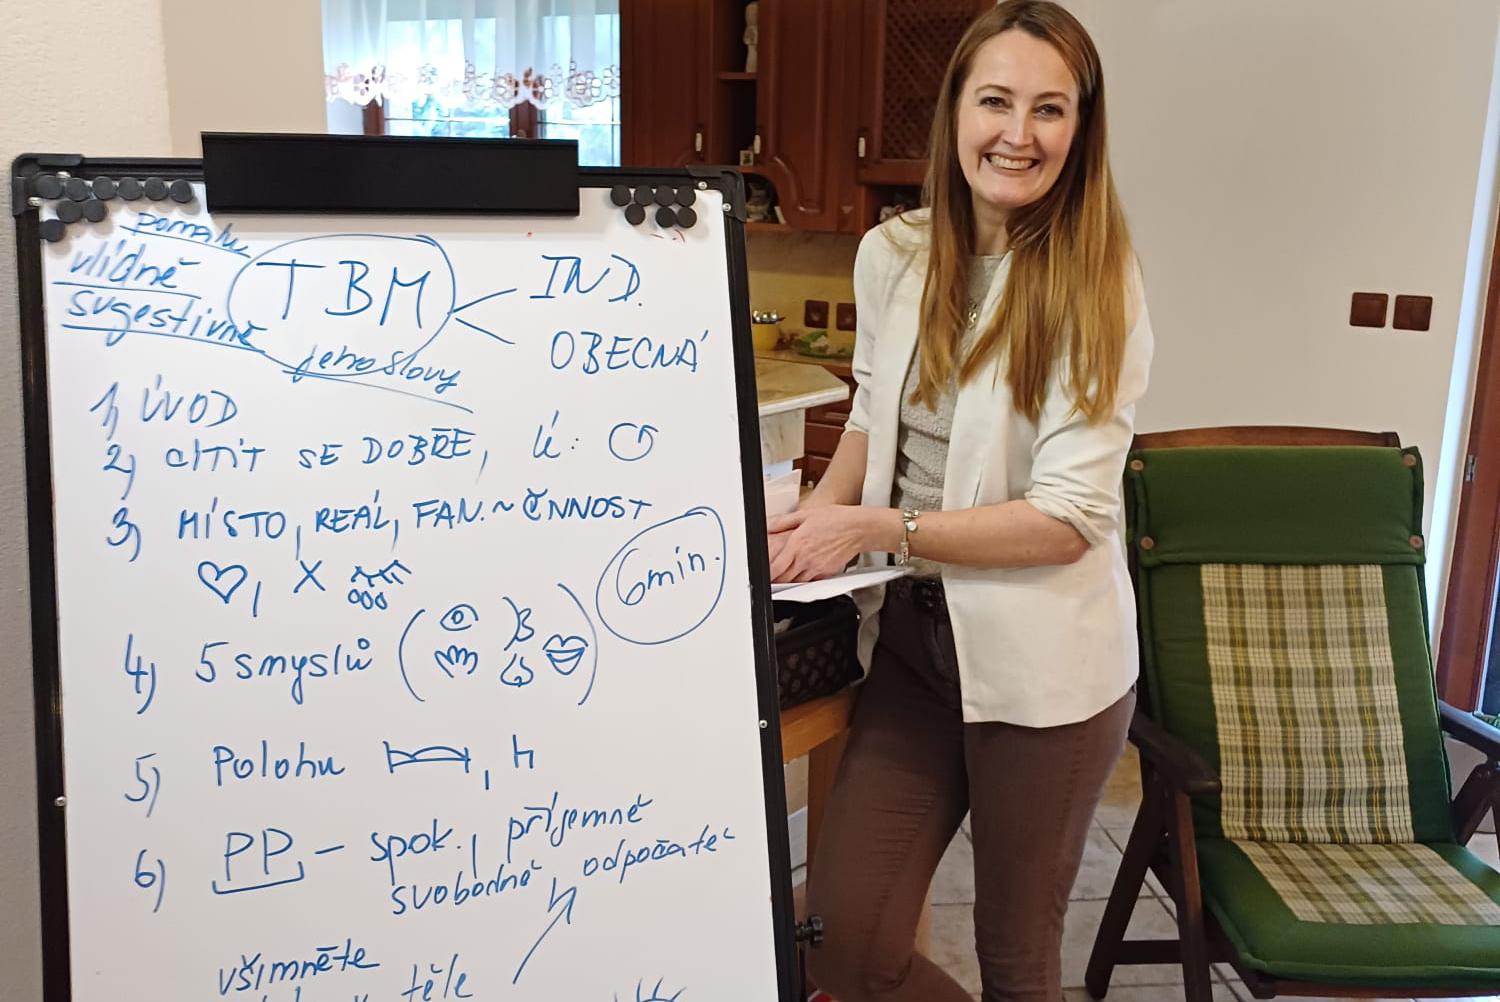 pomalu
vlídně
sugestivně
TBM
IND.
OBECNÁ
jeho slovy
1) ÚVOD
2) CÍTIT SE DOBŘE,
3) MÍSTO, REÁL, FAN. ~ ČINNOST
X
6 min.
4) 5 smyslů
5) Polohu
6) PP - spok., příjemně
svobodně, odpočatě
všimněte
těle